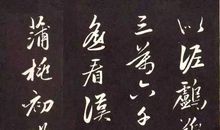 似泥鸕鶿
三萬六千
遙看漢
蒲桃初